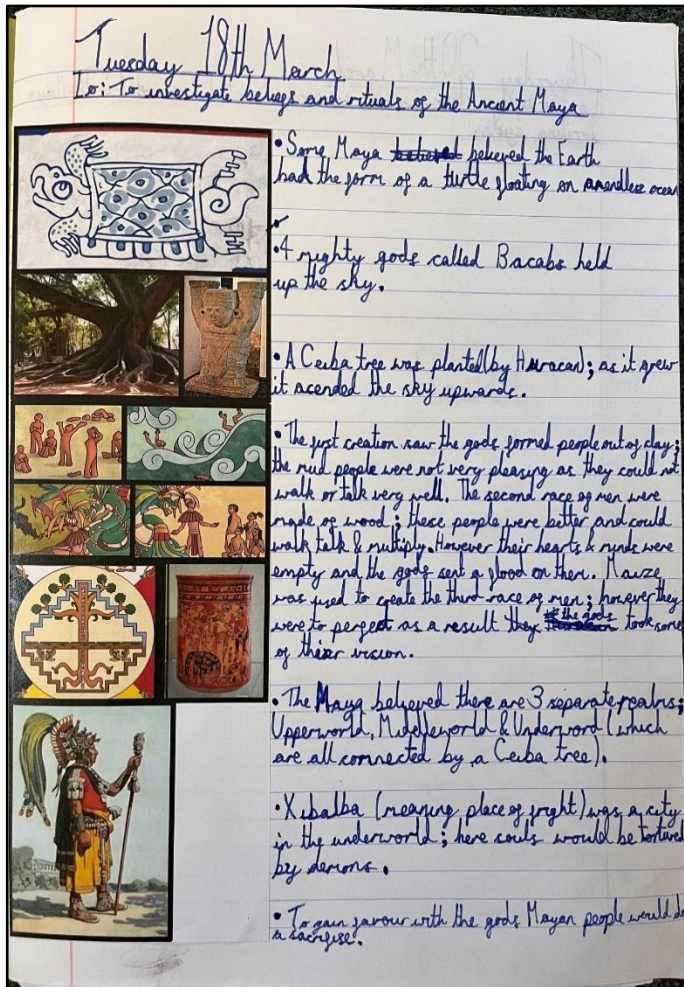 Tuesday 18th March
Lo: To investigate beliefs and rituals of the Ancient Maya
• Some Maya believed the Earth
had the form of a turtle floating on an endless ocean
• 4 mighty gods called Bacabs held
up the sky.
• A Ceiba tree was planted (by Huracan); as it grew
it acended the sky upwards.
• The first creation saw the gods formed people out of clay;
the mud people were not very pleasing as they could not
walk or talk very well. The second race of men were
made of wood; these people were better and could
walk talk & multiply. However their hearts & minds were
empty and the gods sent a flood on them. Maize
was used to create the third race of men; however they
were to perfect as a result the gods took some
of their vision.
• The Maya believed there are 3 separate realms;
Upperworld, Middleworld & Underword (which
are all connected by a Ceiba tree).
• Xibalba (meaning place of fright) was a city
in the underworld; here souls would be tortured
by demons.
• To gain favour with the gods Mayan people would do
a sacrifise.